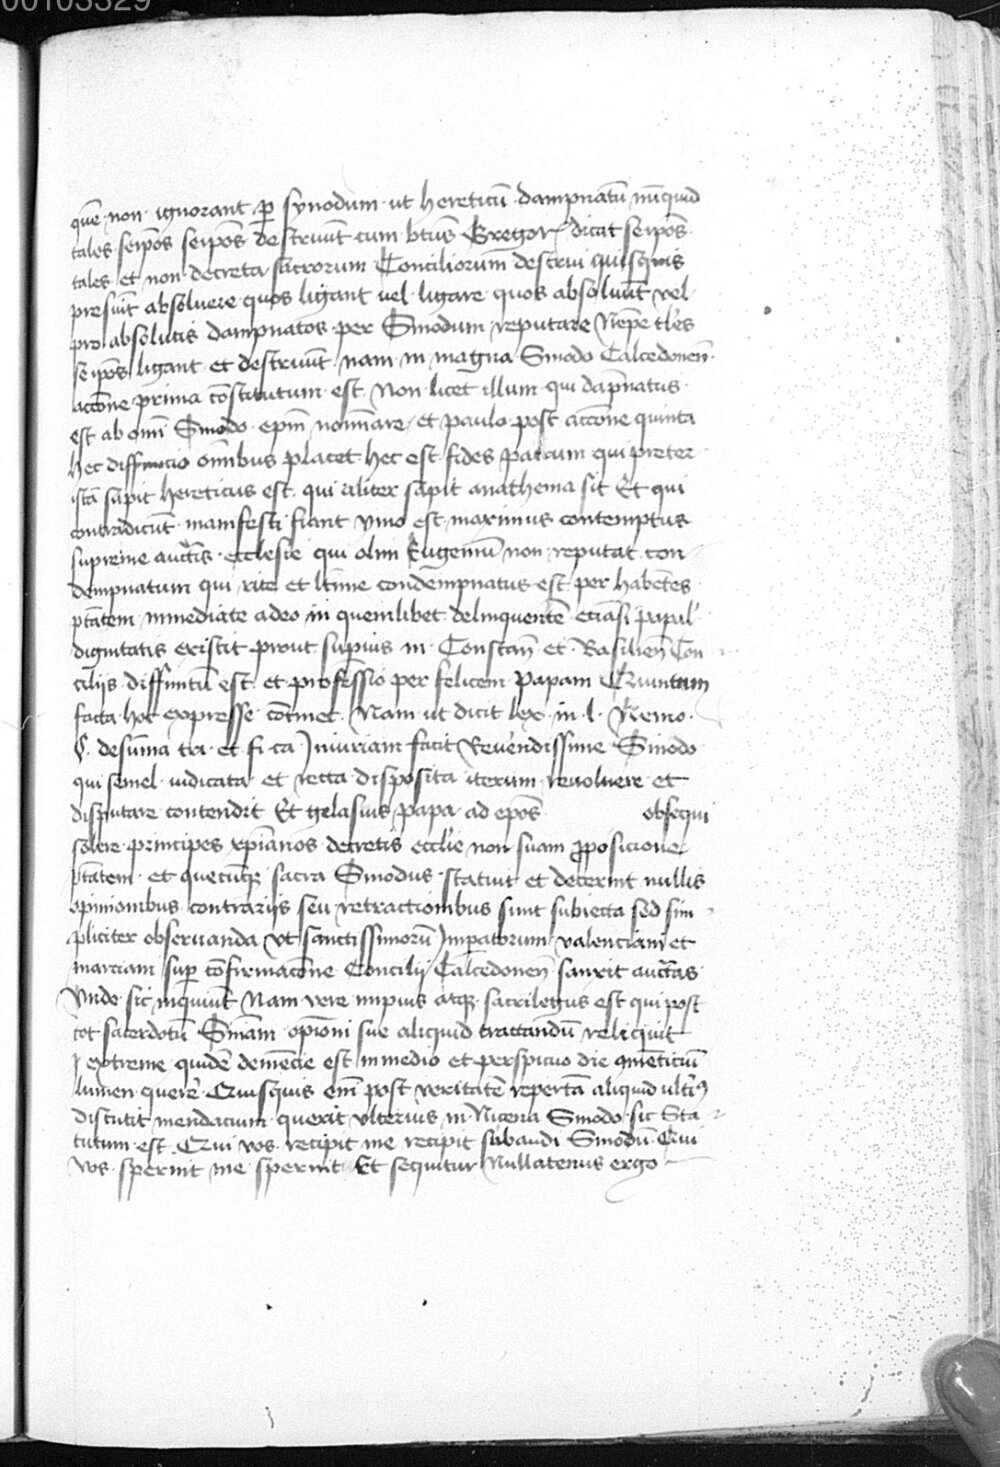 00103329
quē non ignorant ꝑ synodum ut hereticū dampnatū nūquid
tales seip̄os seip̄os destruūt cum btūs Gregor dicat seip̄os
tales et non decreta sacrorum Conciliorum destrui quisquis
presūit absoluere quos ligant uel ligare quos absoluūt vel
pro absolutis dampnatos per Sinodum reputare Nēpe tl̄es
seip̄os ligant et destruūt nam in magna Sinodo Calcedonen̄
acc̄one prima cōstitutum est Non licet illum qui dāpnatus
est ab omī Sinodo ep̄m noīare et paulo post acc̄one quinta
hec diffinicio om̄ibus placet hec est fides patrum qui preter
istā sapit hereticus est qui aliter sapit anathema sit Et qui
contradicūt manifesti fiant ymo est maximus contemptus
supreme auctīs ecclesie qui olim Eugeniū non reputat con
dempnatum qui rite et ltīme condempnatus est per habētes
ptātem immediate adeo in quemlibet delinquentē eciāsi papal
dignitatis existit prout supius in Constan̄ et Basilien̄ Con
cilijs diffinitū est et professio per felicem papam Quintum
facta hoc expresse cōtinet Nam ut dicit lex in l Nemo
C de sum̄a tri et fi ca Iniuriam facit Reuerendissime Sinodo
qui semel iudicata et recta disposita iterum reuoluere et
disputare contendit Et gelasius papa ad ep̄os obsequi
solere principes xp̄ianos decretis ecclīe non suam p̄posicione
ptātem et quecūqȝ sacra Sinodus statuit et decernit nullis
opinionibus contrarijs seu retractionibus sunt subiecta sed sim
pliciter obseruanda vt sanctissimorū Imp̄atorum valenciani et
marciani sup cōfirmacōne Concilij Calcedonen̄ sanxit auctās
Vnde sic inquiūt Nam vere impius atqȝ sacrilegus est qui post
tot sacerdotū Sn̄iam opīoni sue aliquid tractandū reliquit
extreme quidē demēcie est in medio et perspicuo die
lumen querē Quisquis eni post veritatē repertā aliquid ultī9
discutit mendacium querit vlterius in Nicena Sinodo sic Sta
tutum est Qui vos recipit me recipit subaudi Sinodū Qui
vos spernit me spernit Et sequitur Nullatenus ergo